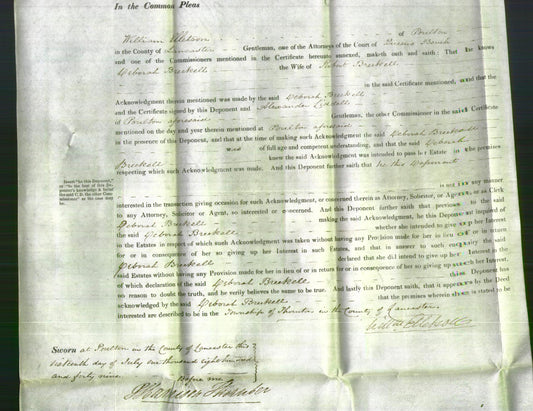 In the Common Pleas
William of Poulton
in the County of Lancaster Gentleman, one of the Attorneys of the Court of Queens Bench
and one of the Commissioners mentioned in the Certificate hereunto annexed, maketh oath and saith: That he knows
Deborah Breckell the Wife of Robert Breckell
in the said Certificate mentioned, and that the
Acknowledgment therein mentioned was made by the said Deborah Breckell
and the Certificate signed by this Deponent and Alexander
of Poulton aforesaid Gentleman, the other Commissioner in the said Certificate
mentioned on the day and year therein mentioned at Poulton aforesaid
in the presence of this Deponent, and that at the time of making such Acknowledgment the said Deborah Breckell
was of full age and competent understanding, and that the said Deborah
Breckell knew the said Acknowledgment was intended to pass her Estate in the premises
respecting which such Acknowledgment was made. And this Deponent further saith that he this Deponent
is not in any manner
interested in the transaction giving occasion for such Acknowledgment, or concerned therein as Attorney, Solicitor, or Agent, or as Clerk
to any Attorney, Solicitor or Agent, so interested or concerned. And this Deponent further saith that previous to the said
Deborah Breckell making the said Acknowledgment, he this Deponent inquired of
the said Deborah Breckell whether she intended to give up her Interest
in the Estates in respect of which such Acknowledgment was taken without having any Provision made for her in lieu of or in return
for or in consequence of her so giving up her Interest in such Estates, and that in answer to such enquiry the said
Deborah Breckell declared that she did intend to give up her Interest in the
said Estates without having any Provision made for her in lieu of or in return for or in consequence of her so giving up such her Interest.
of which declaration of the said Deborah Breckell this Deponent has
no reason to doubt the truth, and he verily believes the same to be true. And lastly this Deponent saith, that it appears by the Deed
acknowledged by the said Deborah Breckell that the premises wherein she is stated to be
interested are described to be in the Township of Thornton in the County of Lancaster
Sworn at Poulton in the County of Lancaster this
sixteenth day of July one thousand eight hundred
and forty nine Before me